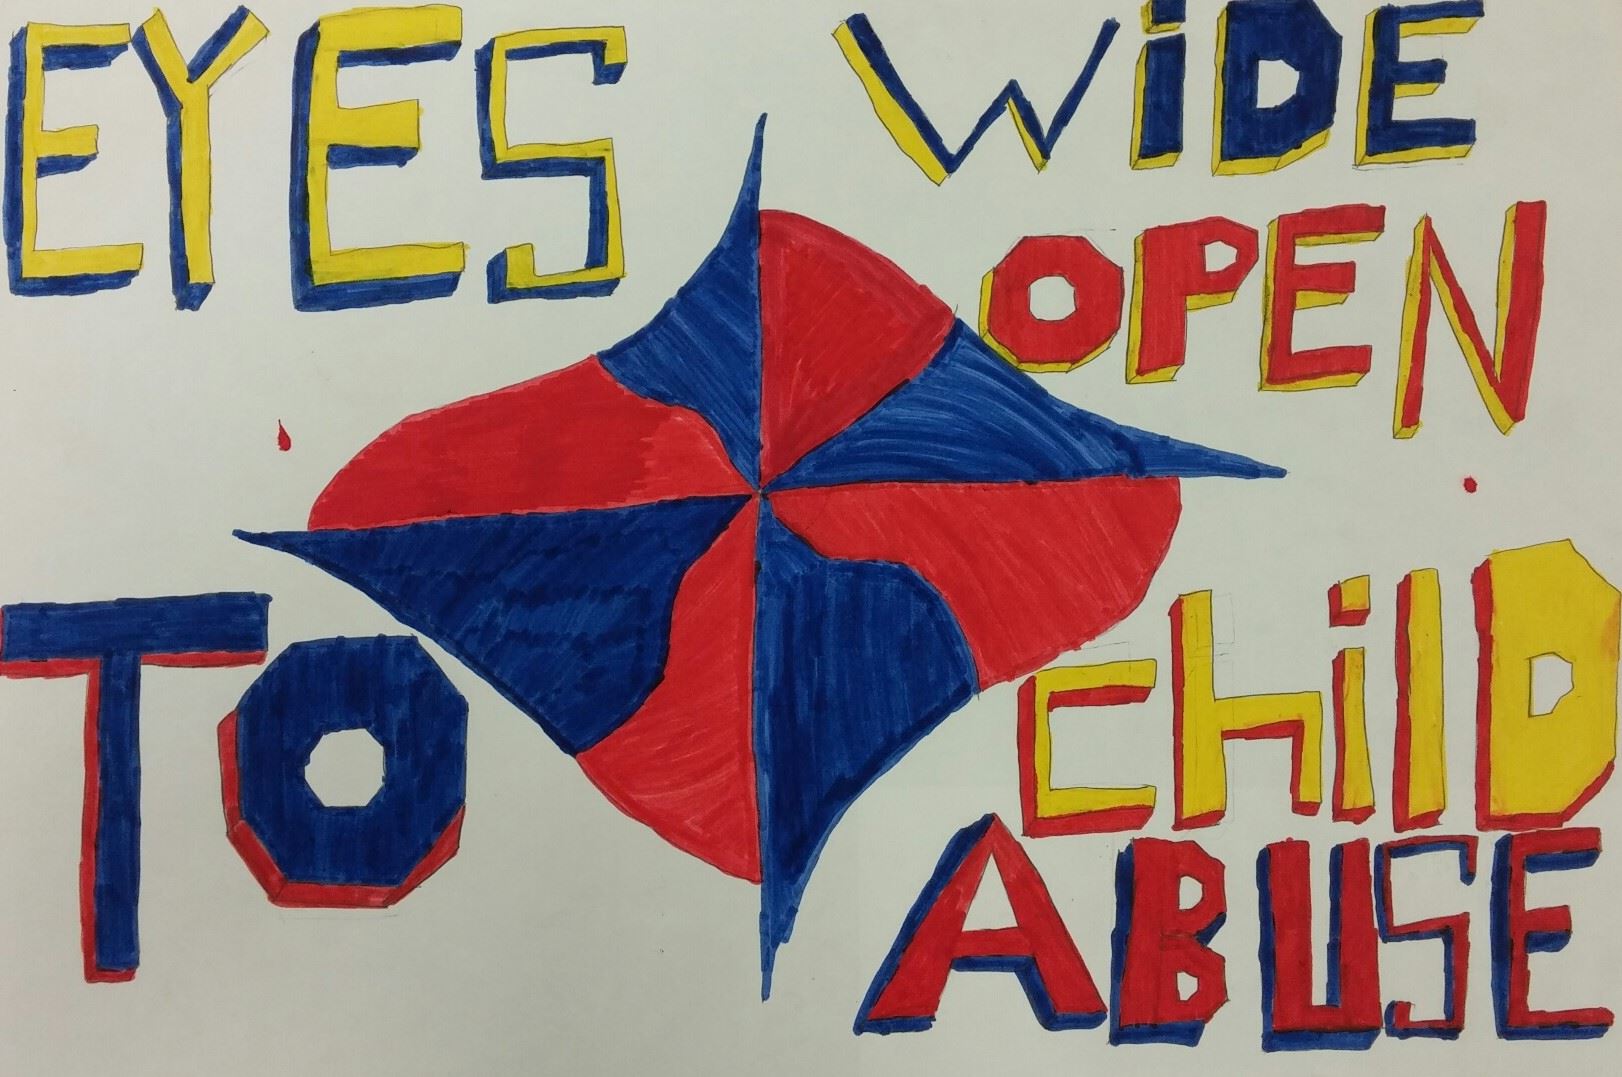 EYES
WiDE
OPEN
TO
ChilD
ABUSE